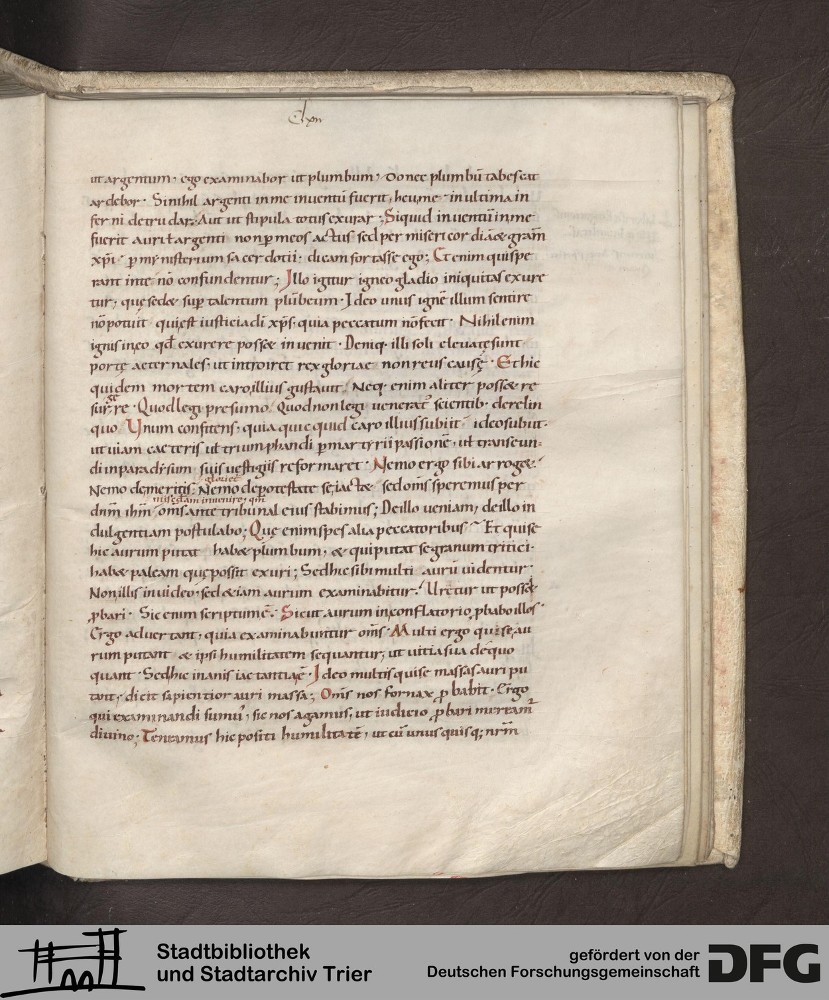 Clxvi
ut argentum · ego examinabor ut plumbum · Donec plumbū tabescat
ardebor · Si nihil argenti in me inventū fuerit · heu me · in ultima in
ferni detrudar · Aut ut stipula totus exurar · Siquid inventū in me
fuerit auri ł argenti non ꝑ meos actus sed per misericordiā & gr̄am
xp̄i · ꝑ mynisterium sacerdotii · dicam fortasse ego · Etenim qui spe
rant in te nō confundentur ; Illo igitur igneo gladio iniquitas exure
tur · quę sed& suꝑ talentum plūbeum · Ideo unus ignē illum sentire
nō potuit qui est iusticia dī xp̄s · quia peccatum nō fecit · Nihil enim
ignis in eo qd̄ exurere poss& invenit · Deniq· illi soli elevatę sunt
portę aeternales · ut introiret rex gloriae non reus causę · Et hic
quidem mortem caro illius gustavit · Neq· enim aliter poss& re
surgere · Quod legi presumo · Quod non legi venerat᷒ scientib· derelin
quo · Unum confitens · quia quicquid caro illius subiit ideo subiit·
ut viam caeteris vł triumphandi ꝑ martyrii passionē · vł transeun
di in paradysum suis vestigiis reformaret · Nemo ergo sibi arrog& ·
Nemo de meritis · Nemo de potestate se iact& sed om̄s speremus per
gloriet
dn̄m ih̄m om̄s ante tribunal eius stabimus ; De illo veniam · de illo in
misc̄dam invenire · qm̄
dulgentiam postulabo ; Quę enim spes alia peccatoribus Et qui se
hic aurum putat hab& plumbum · & qui putat se granum tritici ·
hab& paleam quę possit exuri ; Sed hic sibi multi aurū videntur ·
Non illis invideo · sed &iam aurum examinabitur · Uretur ut poss&
ꝓbari · Sic enim scriptum ē · Sicut aurum in conflatorio ꝓbabo illos ·
Ergo advertant · quia examinabuntur om̄s · Multi ergo qui se au
rum putant & ipsi humilitatem sequantur · ut vitia sua de quo
quant · Sed hic inanis iactantia ē · Ideo multis qui se massas auri pu
tant · dicit sapientior auri massa · Om̄s nos fornax ꝓbabit · Ergo
qui examinandi sumus · sic nos agamus · ut iudicio ꝓbari mereamur
divino ; Teneamus hic positi humilitatē · ut cū unusquisq; nr̄m
Stadtbibliothek
und Stadtarchiv Trier
gefördert von der
Deutschen Forschungsgemeinschaft
DFG